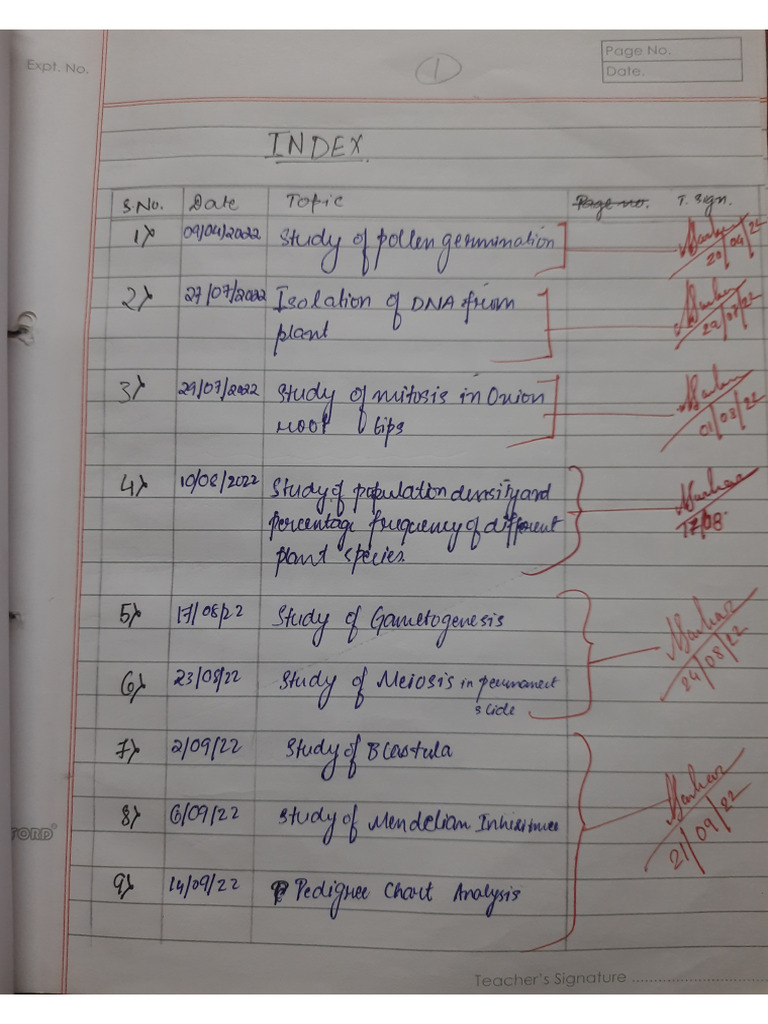 Expt. No.
1
Page No.
Date.
INDEX
S.No. Date Topic Page no. T. Sign.
1) 09/04/2022 Study of pollen germination
20/04/22
2) 27/07/2022 Isolation of DNA from
plant
29/07/22
3) 29/07/2022 Study of mitosis in Onion
root tips
01/08/22
4) 10/08/2022 Study of population density and
percentage frequency of different
plant species.
17/08
5) 17/08/22 Study of Gametogenesis
6) 23/08/22 Study of Meiosis in permanent
slide
24/08/22
7) 2/09/22 Study of Blastula
8) 6/09/22 Study of Mendelian Inheritance
21/09/22
9) 14/09/22 Pedigree Chart Analysis
Teacher's Signature